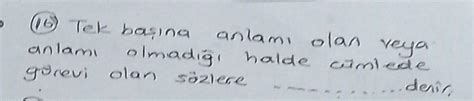 16) Tek başına anlamı olan veya
anlamı olmadığı halde cümlede
görevi olan sözlere ............ denir.